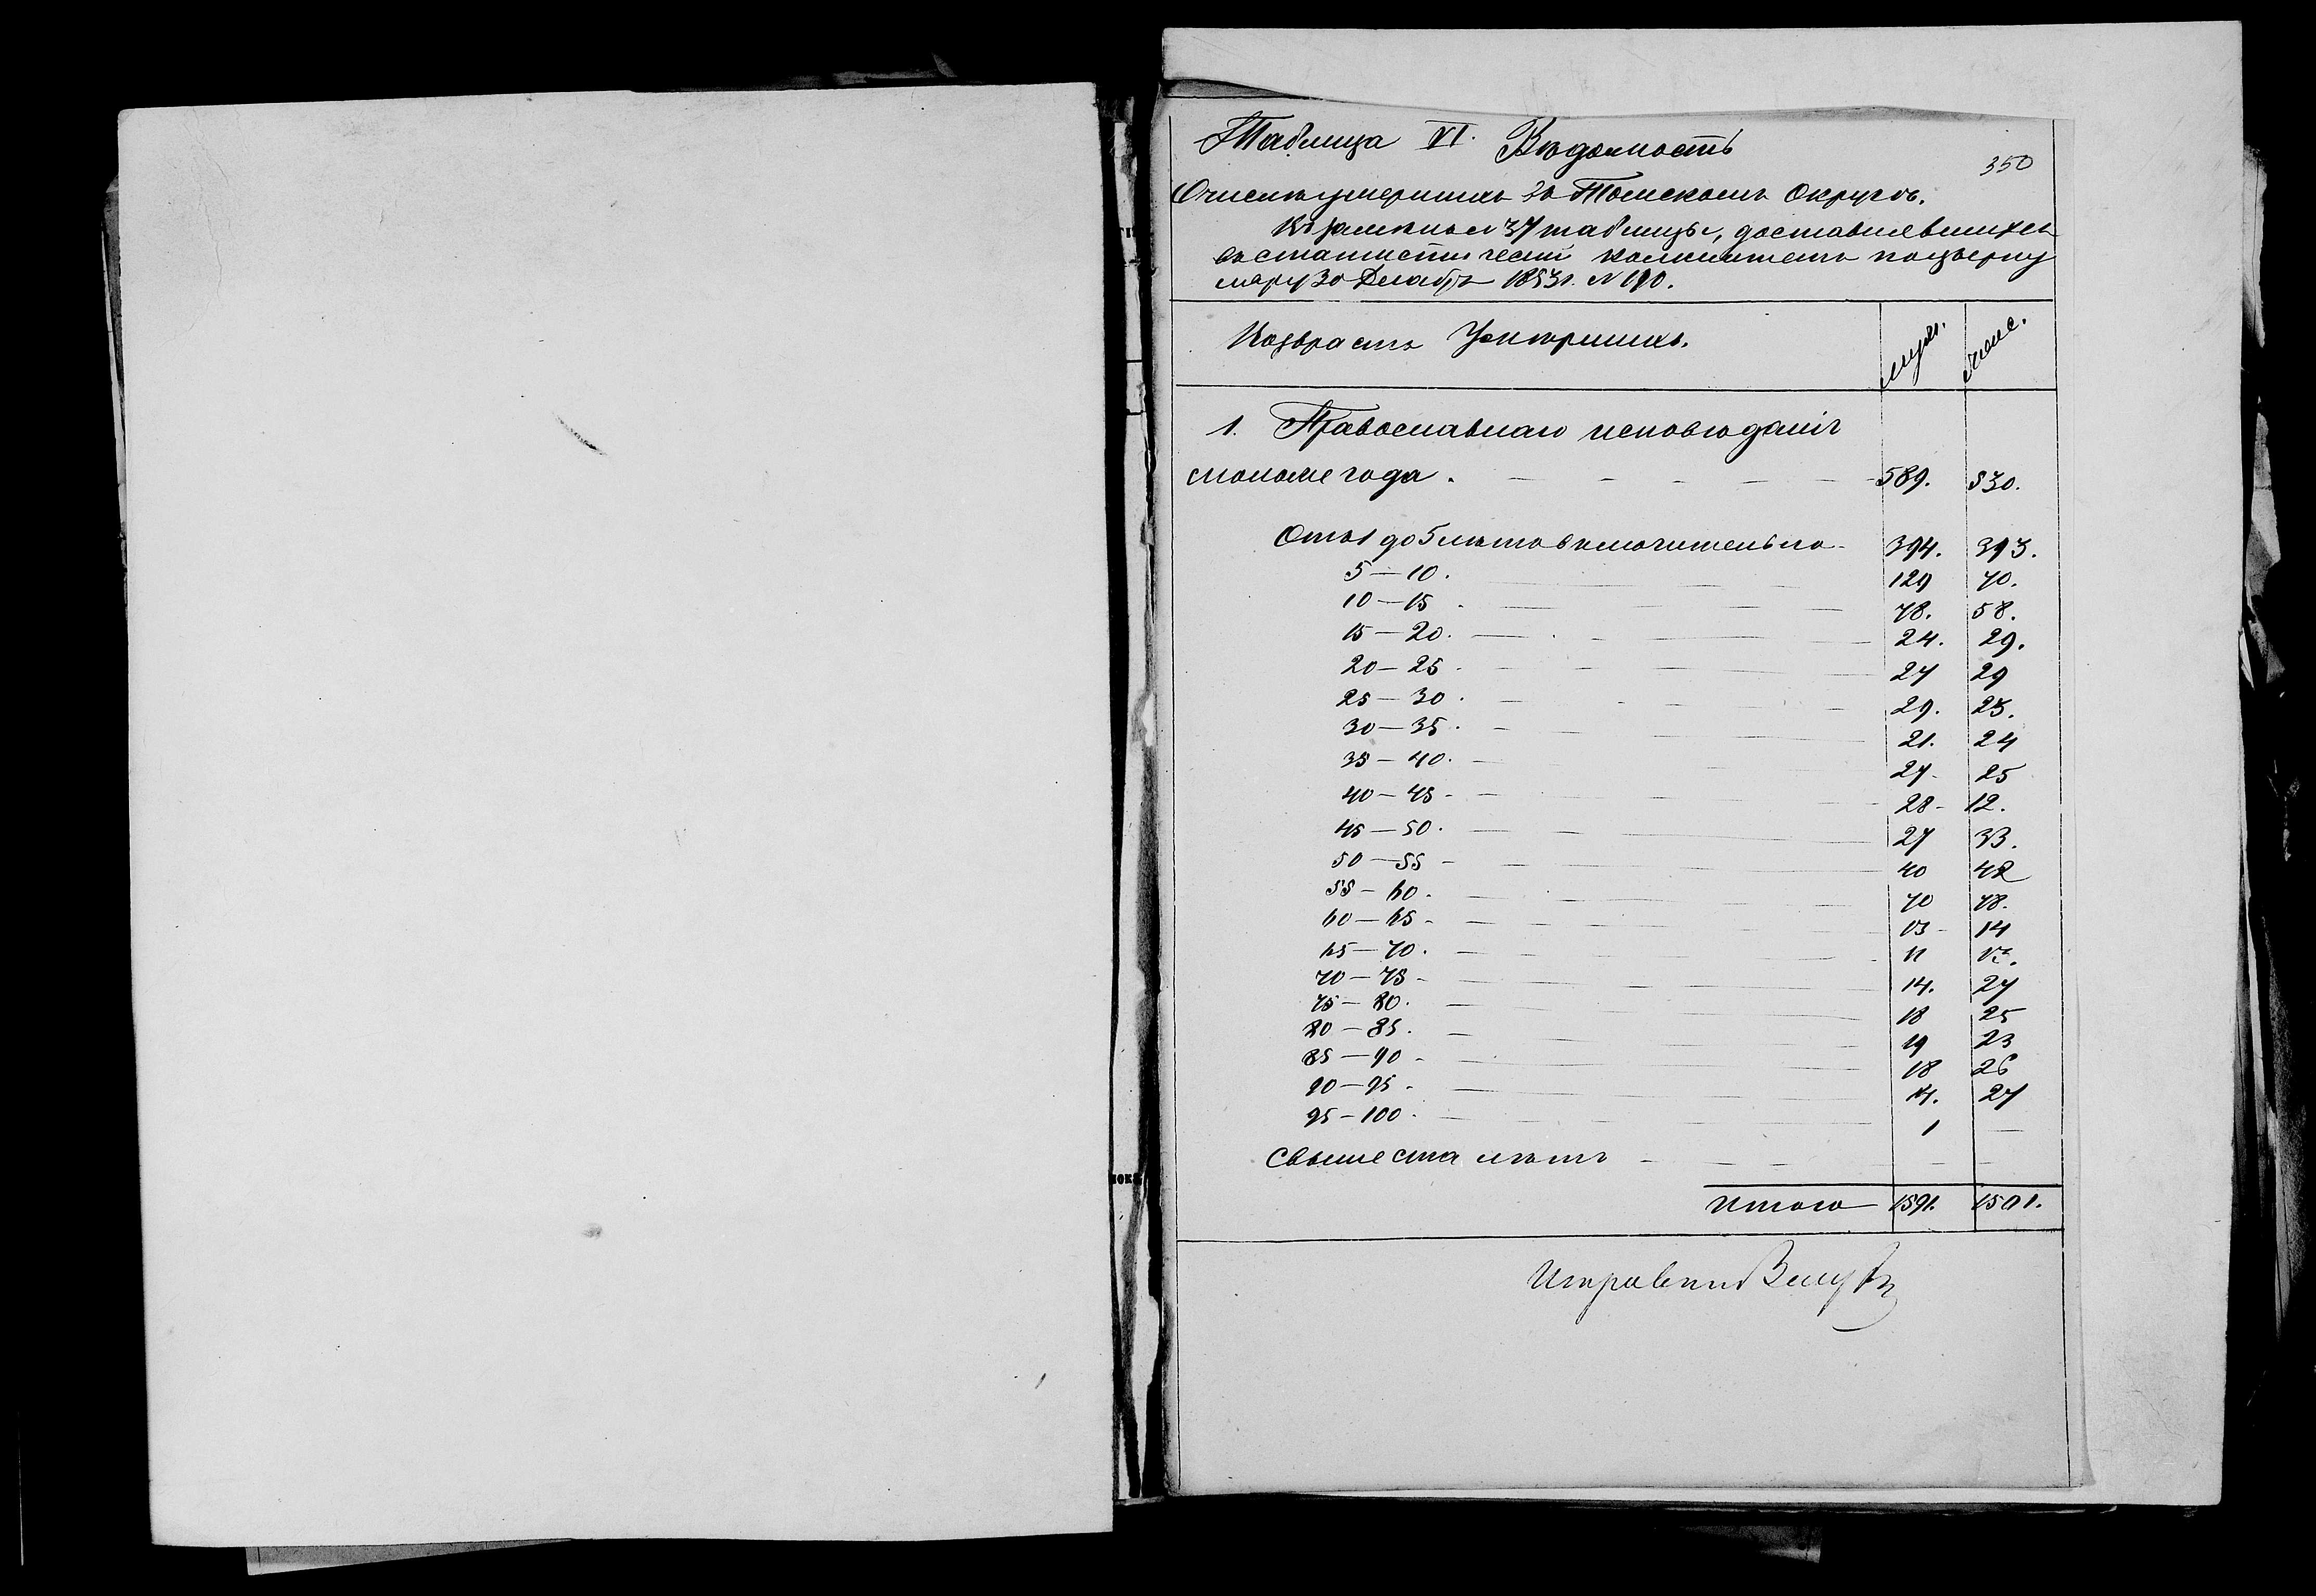 Таблица VI. Вѣдомость
350
О числѣ умершихъ въ Томскомъ Округѣ.
таблицы, доставлевшихся
въ статистическій комитетъ
30 Декабря 1853 г. № 190.
Возврастъ Умершихъ. муж. женс.
1. Православнаго исповѣданія
моложе года. 589. 530.
Отъ 1 до 5 лѣтъ включительно 394. 393.
5—10. 129 70.
10—15 78. 58.
15—20. 24. 29.
20—25. 27 29
25—30. 29. 23.
30—35. 21. 24
35—40. 27- 25
40—45- 28- 12.
45—50. 27 33.
50—55- 40 42
55—60. 70 78.
60—65- 13- 14
65—70. 11
70—75- 14. 27
75—80. 18 25
80—85. 19 23
85—90- 18 26
90—95. 14. 27
95—100. 1 —
Свыше ста лѣтъ - - -
Итого 1591. 1501.